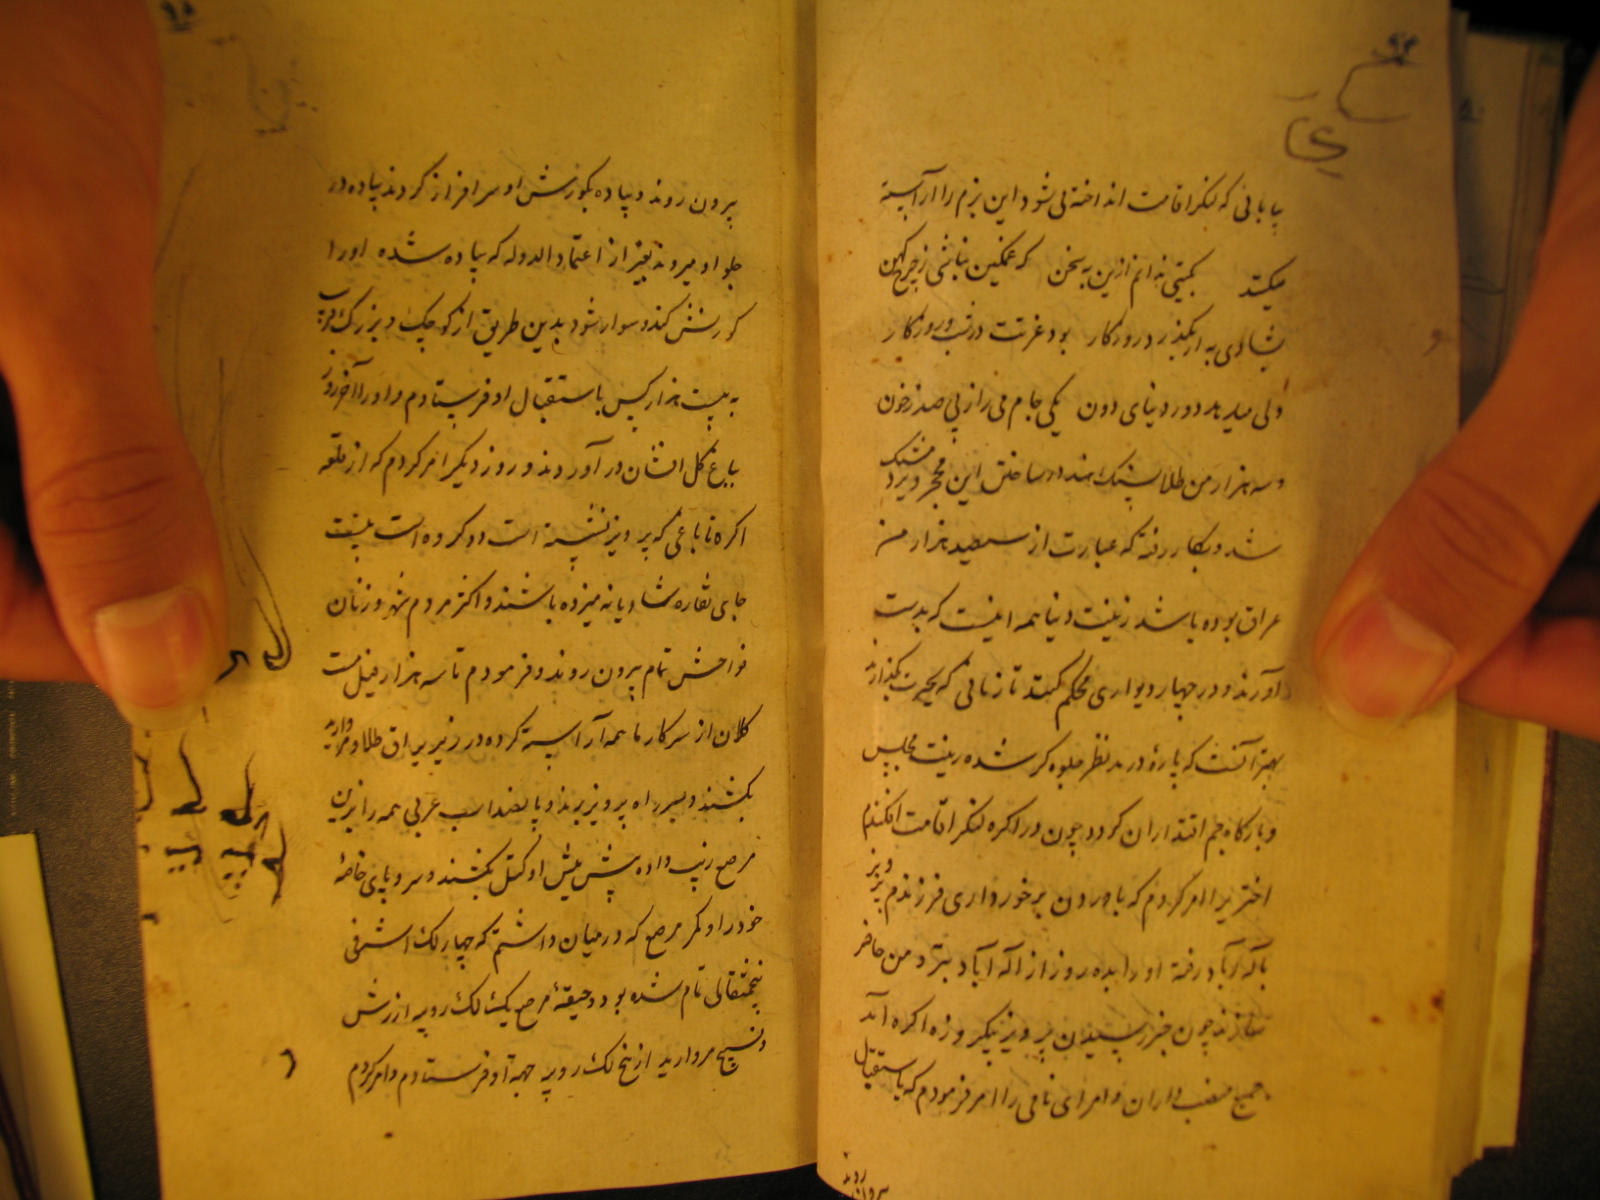 ۹۴
بیابانی که لنگر اقامت انداخته می شود این بزم را آراسته
میکنند بگیتی ندانم ازین به سخن که غمگین نباشی ز چرخ کهن
بشادی به از بگذرد روزگار بود عزتت در شب و روزگار
ولی میدهد دور دنیای دون یکی جام می را ز پی صد ز خون
و سه هزار من طلا بسنگ هند در ساختن این محجر و
شد و بکار رفته که عبارت از سیصد هزار من
عراق بوده باشد زینت دنیا همه اینست که بدست
آورند و در چهار دیواری محکم کنند تا زمانی که بحیرت بگذارند
بهتر آنست که پاره در مد نظر جلوه گر شده زینت مجلس
و بارگاه جم اقتداران گردد چون در اکره لنگر اقامت افکندم
اختر را امر کردم که با درون برخورداری فرزندم پرویز
باله آباد رفته او را بده روز از اله آباد نزد من حاضر
سازند چون خبر رسیدن پرویز بیکروزه اکره آمد
جمیع منصب داران و امرای نامی را امر فرمودم که باستقبال
بیرون روند
۹۵
بیرون روند و پیاده بکورنش او سرافراز کردند پیاده در
جلو او میروند بغیر از اعتماد الدوله که پیاده شده او را
کورنش کند و سوار شود بدین طریق از کوچک و بزرگ قریب
به بیست هزار کس باستقبال او فرستادم و او را آخر روز
بباغ گل افشان در آوردند و روز دیگر امر کردم که از قلعه
اکره تا باغی که پرویز نشسته است دو کروه است بیست
جای نقاره شادیانه میزده باشند و اکثر مردم شهر و زنان
فواحش تمام بیرون روند و فرمودم تا سه هزار فیل مست
کلان از سرکار ما همه آراسته کرده در زیر یراق طلا و مروارید
بکشند و بسر راه پرویز برند و پانصد اسب عربی همه را بزین
مرصع زیب داده پیش پیش او کتل بکشند و سر و پای خاصه
خود را و کمر مرصع که در میان داشتم که چهار لک اشرفی
پنجمثقالی تمام شده بود و جیقه مرصع یک لک روپیه ارزش
و تسبیح مروارید از پنج لک روپیه جهة او فرستادم و امر کردم